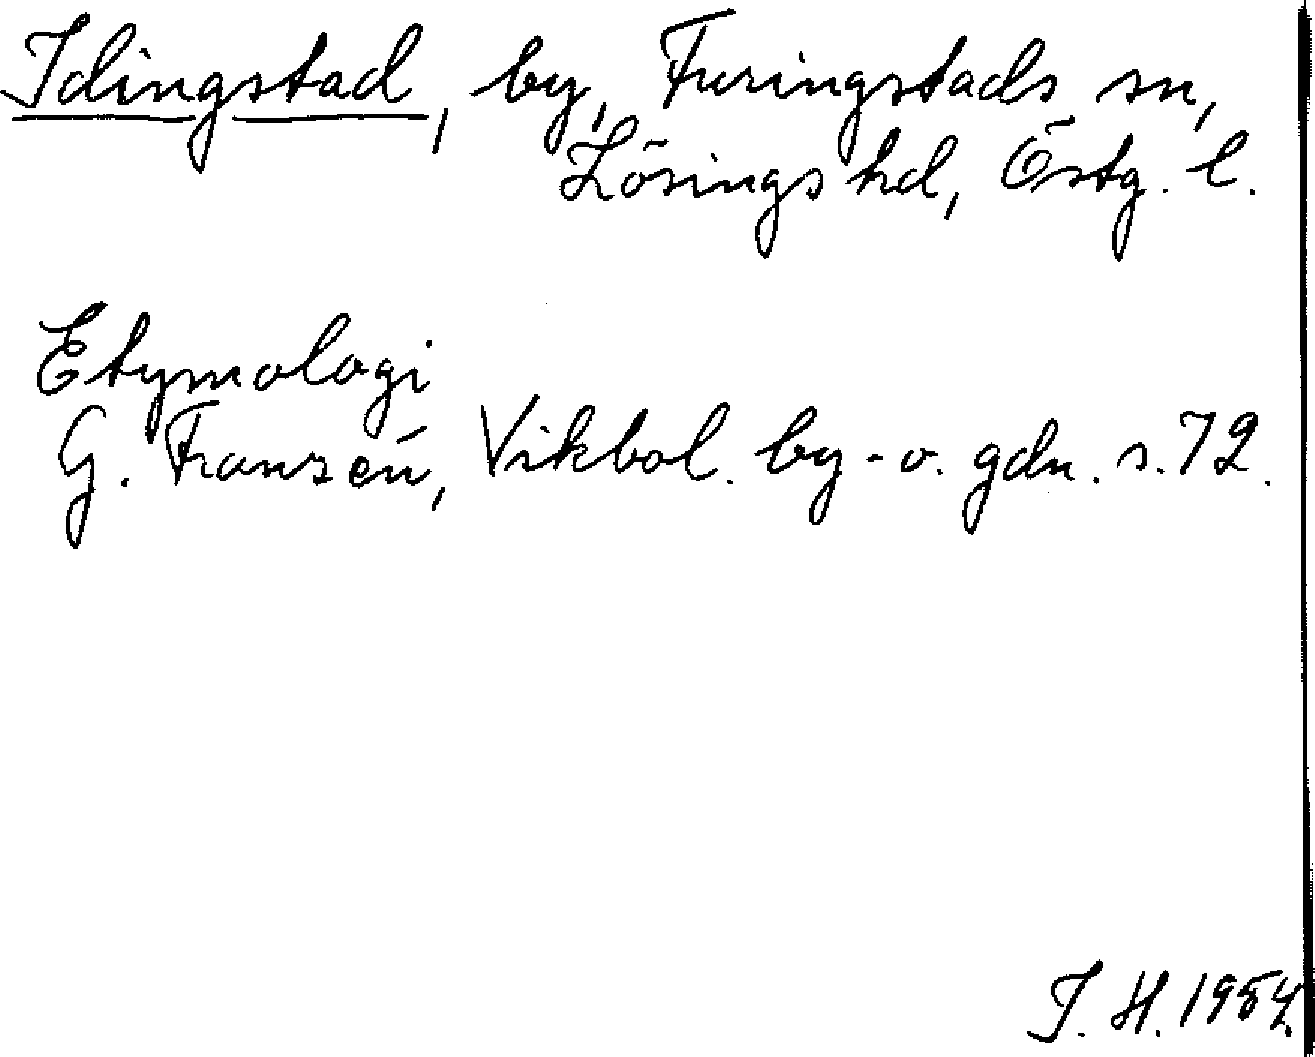 Idingstad, by, Furingstads sn,
Lösings hd, Östg. l.
Etymologi
G. Franzén, Vikbol. by- o. gdn. s. 72.
I. H. 1954.